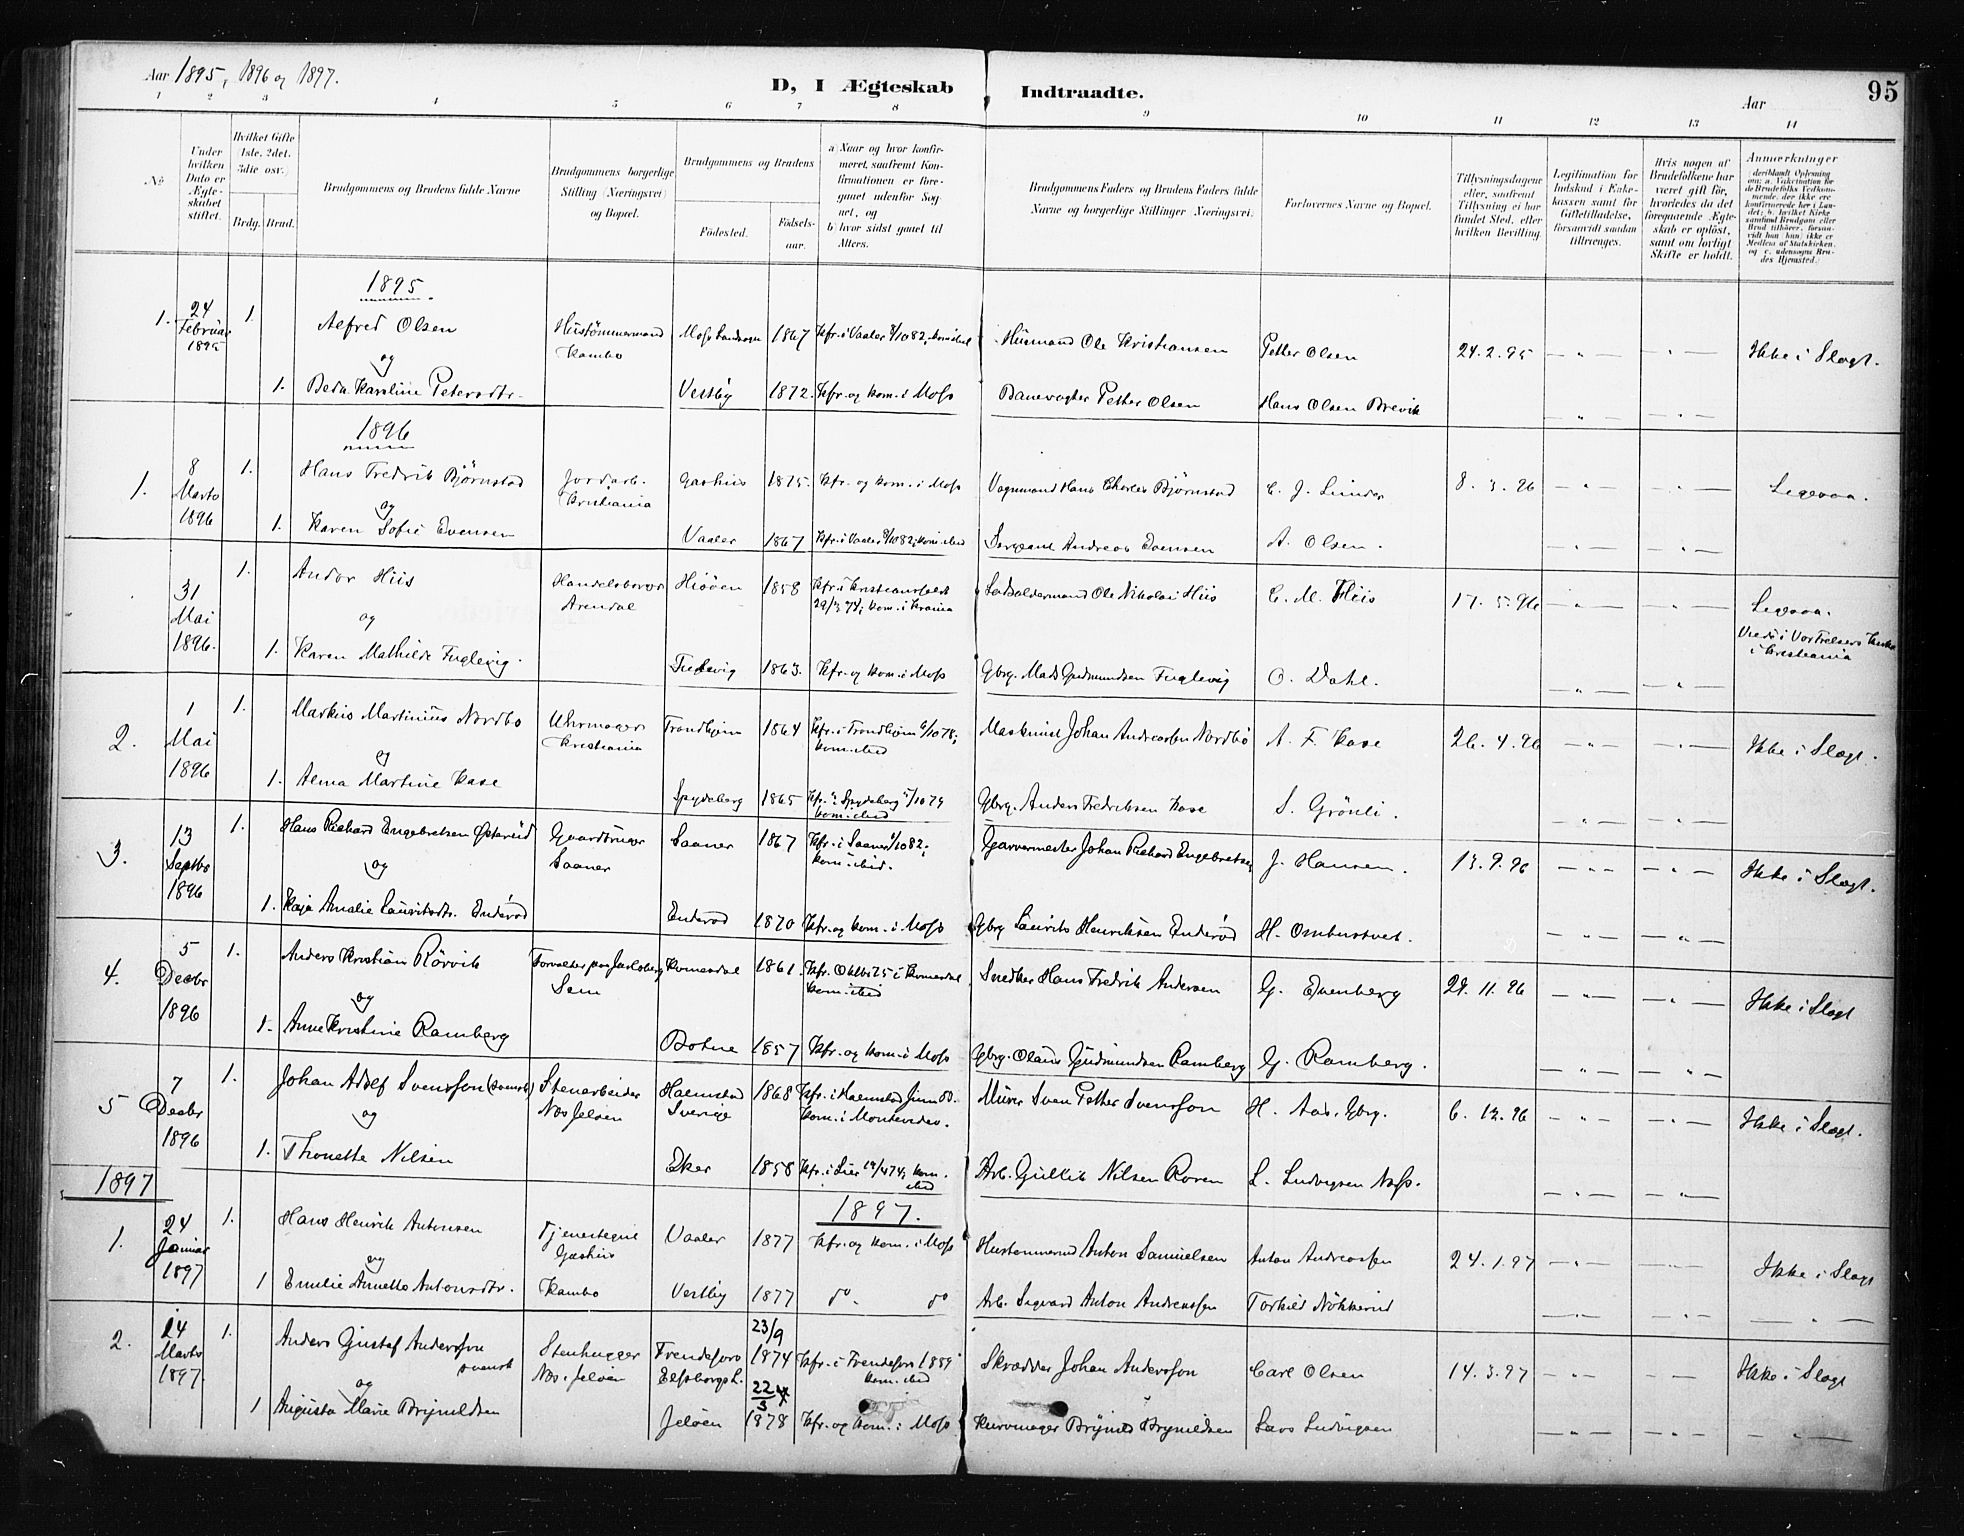 Aar 1895, 1896 og 1897.
D, I Ægteskab Indtraadte.
Aar
95
1 2 3 4 5 6 7 8 9 10 11 12 13 14
No
Under hvilken Dato er Ægteskabet stiftet.
Hvilket Gifte (1ste, 2det, 3die osv.)
Brdg. Brud.
Brudgommens og Brudens fulde Navne
Brudgommens borgerlige Stilling (Næringsvei) og Bopæl.
Brudgommens og Brudens
Fødested.
Fødselsaar.
a) Naar og hvor konfirmeret, saafremt Konfirmationen er foregaaet udenfor Sognet, og
b) hvor sidst gaaet til Alters.
Brudgommens Faders og Brudens Faders fulde Navne og borgerlige Stillinger (Næringsvei.)
Forlovernes Navne og Bopæl.
Tillysningsdagene eller, saafremt Tillysning ei har fundet Sted, efter hvilken Bevilling.
Legitimation for Indskud i Enkekassen samt for Giftetilladelse, forsaavidt saadan tiltrænges.
Hvis nogen af Brudefolkene har været gift før, hvorledes da det foregaaende Ægteskab er opløst, samt om lovligt Skifte er holdt.
Anmærkninger
1895
1. 24 Februar 1895 1. Alfred Olsen Hustømmermand Kambo Moss Landsogn 1867 Kfr. i Vaaler 8/10 82; kom. ibid Husmand Ole Kristiansen Petter Olsen 24.2.95 — " — — " — Ikke i Slægt.
og
1. Beda Karoline Petersdtr. Vestby 1872. Kfr. og kom. i Moss Banevogter Petter Olsen Hans Olsen Brevik — " — — " —
1896
1. 8 Marts 1896 1. Hans Fredrik Bjørnstad Jordarb. Kristiania Gashus 1875. Kfr. og kom. i Moss Vognmand Hans Charles Bjørnstad C. J. Lunder 8.3.96 — " — — " — Ligesaa.
og
1. Karen Sofie Evensen Vaaler 1867 Kfr. i Vaaler 8/10 82; kom. ibid Sergeant Andreas Evensen A. Olsen. — " — — " —
31 Mai 1896. 1. Andor Hiis Handelsborger Arendal Hisøen 1858 Kfr. i Kristiansfeldt 29/3 74; kom. i Krania Ladsoldermand Ole Nikolai Hiis C. M. Hiis 17.5.96 — " — — " — Ligesaa.
og
Viede i Vor Frelsers Kirke i Kristiania
1. Karen Mathilde Fuglevig. Fuglevig 1863. Kfr. og kom. i Moss Gbrg. Mads Gudmundsen Fuglevig O. Dahl. — " — — " —
2. 1 Mai 1896 1. Markus Martinius Nordbo Uhrmager Kristiania Trondhjem 1864 Kfr. i Trondhjem 6/10 78; kom. ibid Maskinist Johan Andreassen Nordbø A. F. Kase 26.4.96 — " — — " — Ikke i Slægt.
og
1. Alma Martine Kase Spydeberg 1865 Kfr. i Spydeberg 5/10 79 kom. ibid Gbrg. Anders Fredriksen Kase S. Grönli. — " — — " —
3. 13 Septbr 1896 1. Hans Richard Engebretsen Østereid Gaardbruger Saaner Saaner 1867 Kfr. i Saaner 1/10 82; kom. ibid. Garvermester Johan Richard Engebretsen J. Hansen. 13.9.96 — " — — " — Ikke i Slægt.
og
1. Kaja Amalie Lauritsdtr. Enderød Enderød 1870 Kfr. og kom. i Moss Gbrg Laurits Henriksen Enderød H. Ombustvet. — " — — " —
4. 5 Decbr 1896 1. Anders Kristian Rörvik Forvalter paa Jarlsberg Sem Romsdal 1861. Kfr. Oktbr 75 i Romsdal kom. ibid Snedker Hans Fredrik Andersen G. Evenberg 29.11.96 — " — — " — Ikke i Slægt
og
1. Anne Kristine Ramberg Botne 1857 Kfr. og kom. i Moss Gbrg. Olaus Gudmundsen Ramberg G. Ramberg. — " — — " —
5 7 Decbr 1896 1. Johan Adolf Svensson (svensk) Stenarbeider Næs Jeløen Halmstad Sverige 1868 Kfr. i Halmstad Juni 80. kom. i Montevideo. Murer Sven Petter Svensson H. Aas, Gbrg. 6.12.96 — " — — " — Ikke i Slægt.
og
1. Thonette Nilsen Eker 1858 Kfr. i Lier 19/4 74; kom. ibid Arb. Gullik Nilsen Roren L. Ludvigsen Næss. — " — — " —
1897 1897.
1. 24 Januar 1897 1. Hans Henrik Antonsen Tjenestegut Gashus Vaaler 1877 Kfr. og kom. i Moss Hustømmermd Anton Samuelsen Anton Andreassen 24.1.97 — " — — " — Ikke i Slægt
og
1 Emilie Annette Antonsdtr. Kambo Vestby 1877 do. do Arb. Sigvard Anton Andreassen Torkild Nökkerud — " — — " — — " —
2. 24 Marts 1897. 1. Anders Gustaf Andersson svensk Stenhugger Næs, Jeløen Frendefors Elfsborgs L. 23/9 1874 Kfr. i Frendefors 1889 kom. ibid Skrædder Johan Andersson Carl Olsen 14.3.97 — " — — " — Ikke i Slægt
og
1 Augusta Marie Brynildsen Jeløen 22/3 1878 Kfr. og kom. i Moss Kurvmager Brynild Brynildsen Lars Ludvigsen — " — — " — — " —